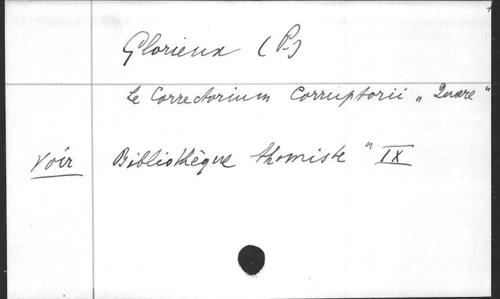 Glorieux (P.)
Le Correctorium Corruptorii „ Quare "
Voir Bibliothèque thomiste " IX